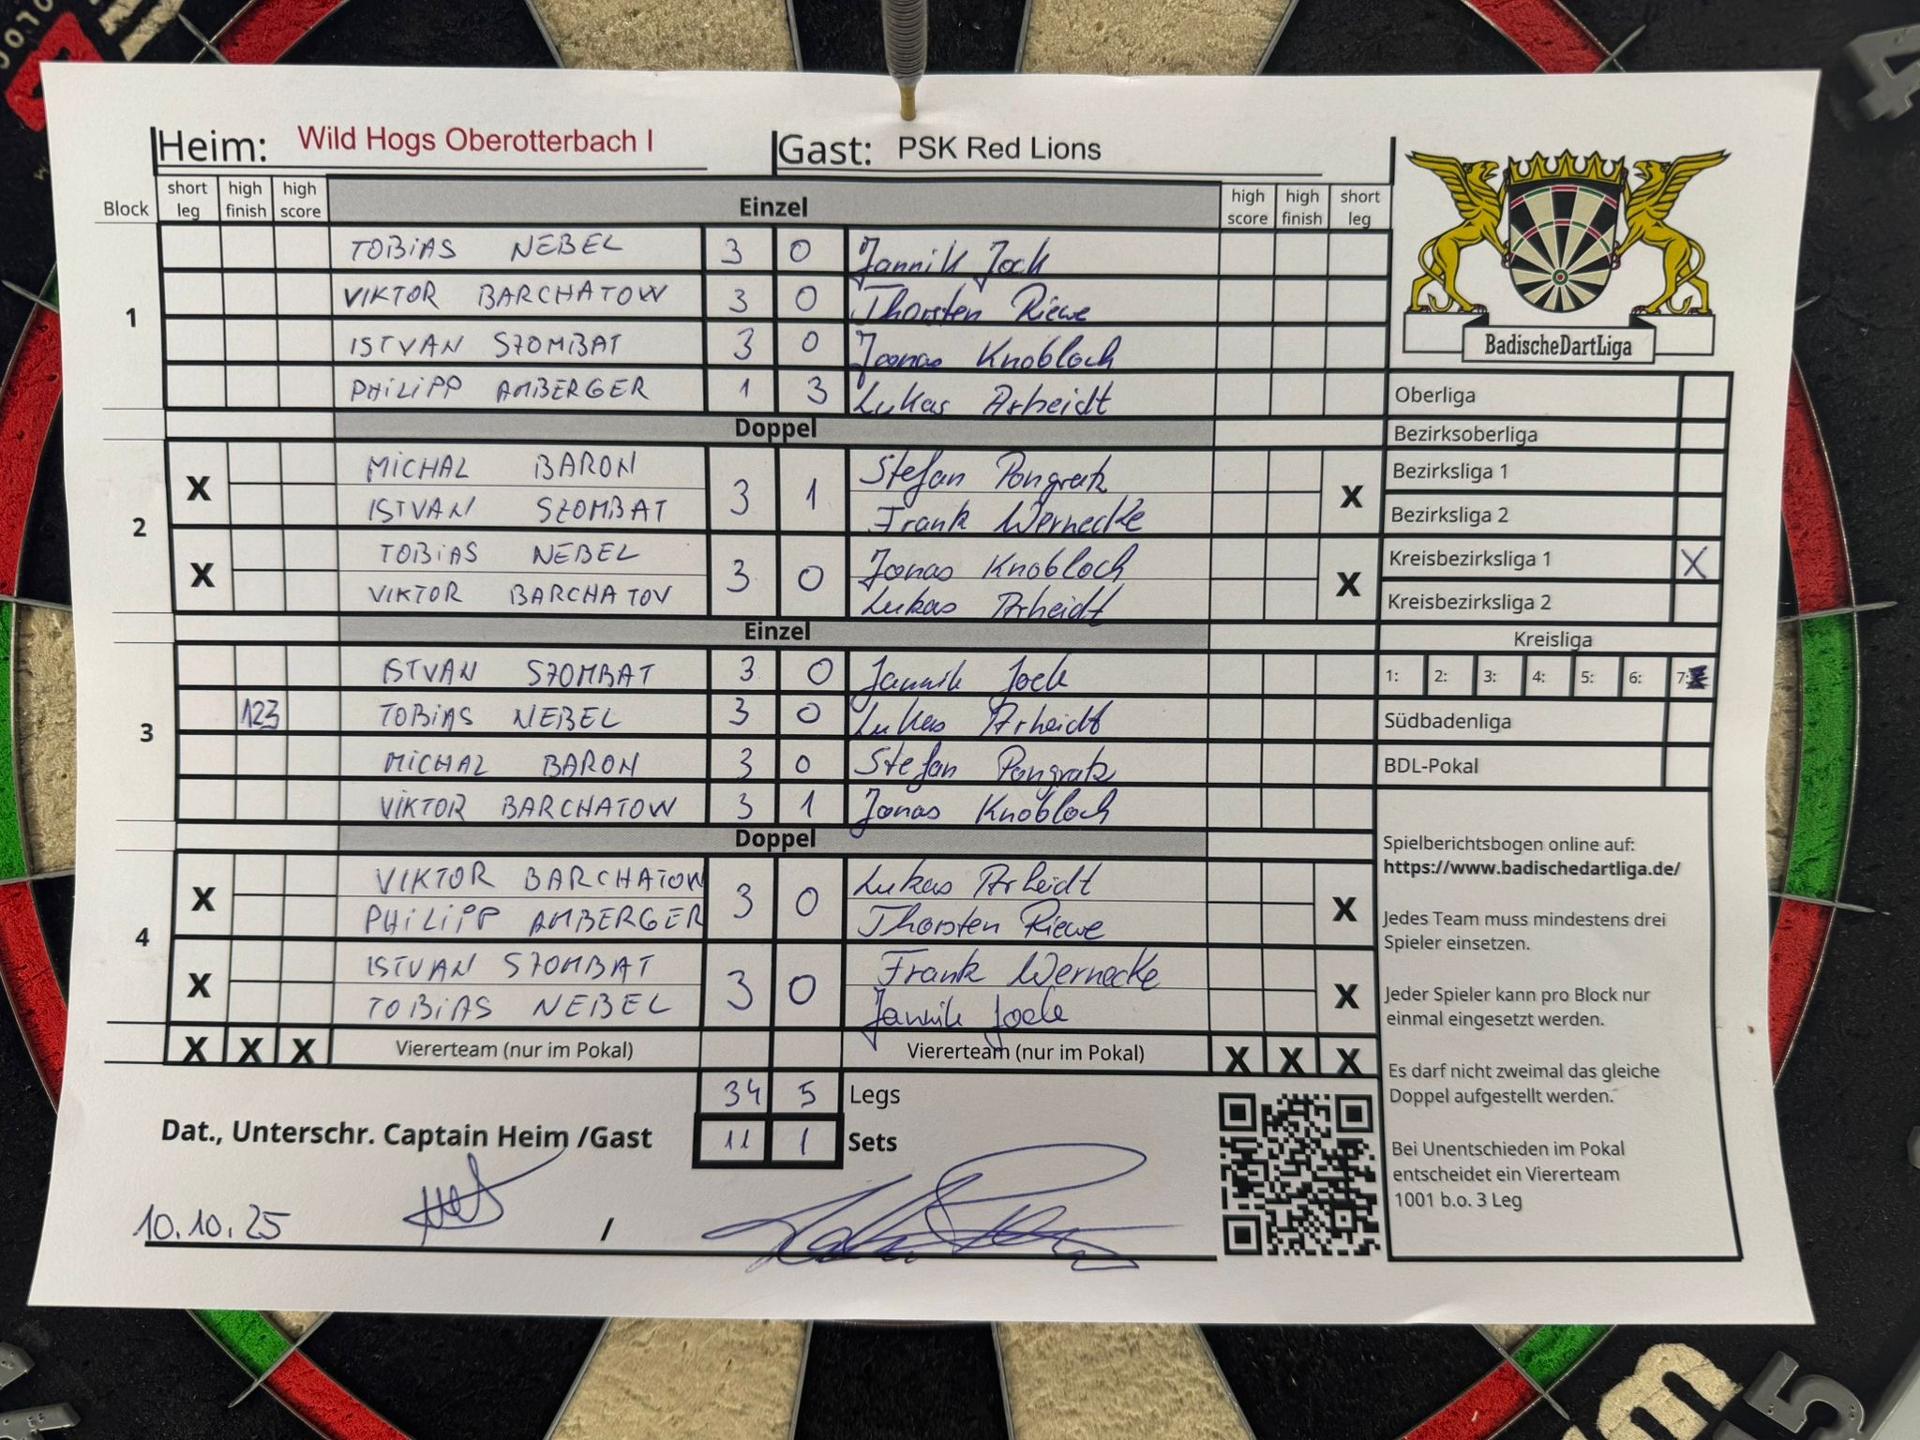 Heim: Wild Hogs Oberotterbach I Gast: PSK Red Lions
Block short leg high finish high score Einzel high score high finish short leg
1
TOBIAS NEBEL 3 0 Jannik Jock
VIKTOR BARCHATOW 3 0 Thorsten Riewe
ISTVAN SZOMBAT 3 0 Joonas Knobloch
PHILIPP AMBERGER 1 3 Lukas Arheidt
Doppel
2
X MICHAL BARON 3 1 Stefan Pongratz X
ISTVAN SZOMBAT Frank Wernecke
X TOBIAS NEBEL 3 0 Jonas Knobloch X
VIKTOR BARCHATOV Lukas Arheidt
Einzel
3
ISTVAN SZOMBAT 3 0 Jannik Jock
123 TOBIAS NEBEL 3 0 Lukas Arheidt
MICHAL BARON 3 0 Stefan Pongratz
VIKTOR BARCHATOW 3 1 Jonas Knobloch
Doppel
4
X VIKTOR BARCHATOW 3 0 Lukas Arheidt X
PHILIPP AMBERGER Thorsten Riewe
X ISTVAN SZOMBAT 3 0 Frank Wernecke X
TOBIAS NEBEL Jannik Jock
X X X Viererteam (nur im Pokal) Viererteam (nur im Pokal) X X X
34 5 Legs
11 1 Sets
Dat., Unterschr. Captain Heim /Gast
10.10.25 /
BadischeDartLiga
Oberliga
Bezirksoberliga
Bezirksliga 1
Bezirksliga 2
Kreisbezirksliga 1 X
Kreisbezirksliga 2
Kreisliga
1: 2: 3: 4: 5: 6: 7:
Südbadenliga
BDL-Pokal
Spielberichtsbogen online auf:
https://www.badischedartliga.de/
Jedes Team muss mindestens drei
Spieler einsetzen.
Jeder Spieler kann pro Block nur
einmal eingesetzt werden.
Es darf nicht zweimal das gleiche
Doppel aufgestellt werden.
Bei Unentschieden im Pokal
entscheidet ein Viererteam
1001 b.o. 3 Leg
4
15